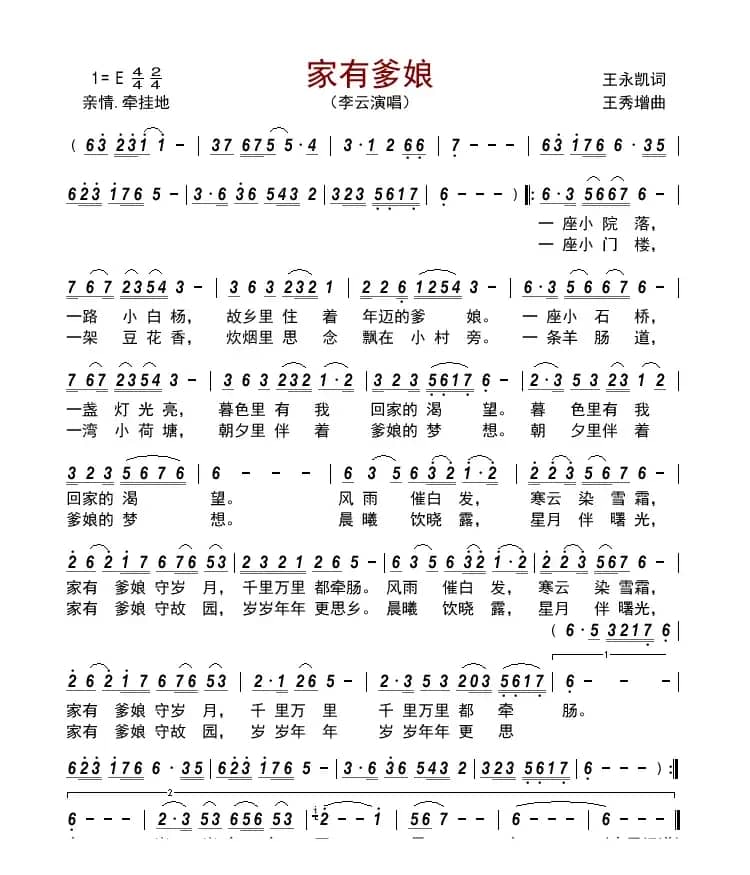 家有爹娘
1=E 4/4 2/4
王永凯词
亲情.牵挂地
（李云演唱）
王秀增曲
( 63 2321 1 - | 37 675 5·4 | 3·1 2 66 | 7 - - - | 63 176 6·35 |
623 176 5 - | 3·6 36 543 2 | 323 5617 | 6 - - - ) ‖: 6·3 5667 6 - |
一座小院落，
一座小门楼，
7 67 2354 3 - | 3 6 3 232 1 | 2 2 6 1254 3 - | 6·3 5 6 6 7 6 - |
一路 小白杨， 故乡里 住着 年迈的爹 娘。 一座小 石桥，
一架 豆花香， 炊烟里 思念 飘在 小村 旁。 一条羊 肠道，
7 67 2354 3 - | 3 6 3 232 1·2 | 3 2 3 5617 6 - | 2·3 5 3 23 1 2 |
一盏 灯光亮， 暮色里 有我 回家的 渴 望。 暮 色里有我
一湾 小荷塘， 朝夕里 伴着 爹娘的 梦 想。 朝 夕里伴着
3 2 3 5 6 7 6 | 6 - - - | 6 3 5 632 1·2 | 2 2 3 5 67 6 - |
回家的 渴 望。 风雨 催白 发， 寒云 染雪霜，
爹娘的 梦 想。 晨曦 饮晓 露， 星月 伴曙光，
2 6 2 1 7 6 76 53 | 2 3 2 1 2 6 5 - | 6 3 5 6 32 1·2 | 2 2 3 567 6 - |
家有 爹娘 守岁 月， 千里万里 都牵肠。 风雨 催白 发， 寒云 染雪霜，
家有 爹娘 守故 园， 岁岁年年 更思乡。 晨曦 饮晓 露， 星月 伴曙光，
( 6·5 3217 6
1
2 6 2 1 7 6 76 53 | 2·1 2 6 5 - | 2·3 5 3 203 5617 | 6 - - - |
家有 爹娘 守岁 月， 千 里万 里 千 里万里 都 牵 肠。
家有 爹娘 守故 园， 岁 岁年 年 岁 岁年年 更 思
623 176 6·35 | 623 176 5 - | 3·6 36 543 2 | 323 5617 | 6 - - - ) :‖
2
6 - - - | 2·3 53 656 53 | 2 - - 1 | 6 - - - | 6 - - - | 6 5 6 · 5 |